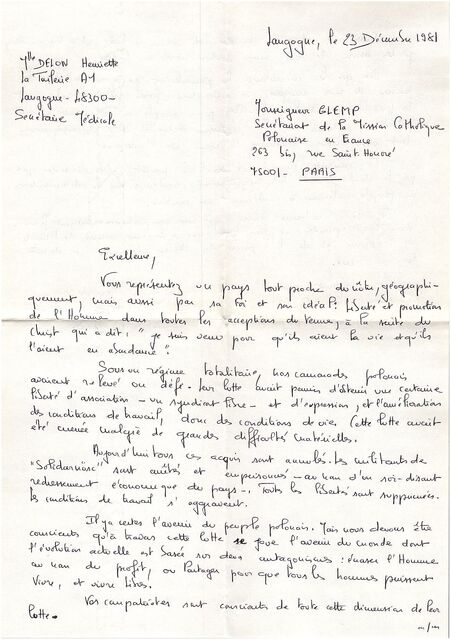 Langogne, le 23 Décembre 1981
Mlle DELON Henriette
la Tuilerie A1
Langogne - 48300 -
Secrétaire Médicale
Monseigneur GLEMP
Secrétariat de la Mission Catholique
Polonaise en France
263 bis, rue Saint-Honoré
75001 - PARIS
Excellence,
Vous représentez un pays tout proche du nôtre, géographi-
quement, mais aussi par sa Foi et son idéal : liberté et promotion
de l'Homme dans toutes les acceptions du terme, à la suite du
Christ qui a dit : " je suis venu pour qu'ils aient la vie et qu'ils
l'aient en abondance ".
Sous un régime totalitaire, nos camarades polonais
avaient relevé un défi. leur lutte avait permis d'obtenir une certaine
liberté d'association - un syndicat libre - et d'expression, et l'amélioration
des conditions de travail, donc des conditions de vie. Cette lutte avait
été menée malgré de grandes difficultés matérielles.
Aujourd'hui tous ces acquis sont annulés. les militants de
"Solidarnosc" sont arrêtés et emprisonnés - au nom d'un soi-disant
redressement économique du pays -. Toutes les libertés sont supprimées.
les conditions de travail s'aggravent.
Il y a certes l'avenir du peuple polonais. Mais nous devons être
conscients qu'à travers cette lutte se joue l'avenir du monde dont
l'évolution actuelle est basée sur deux antagonismes : écraser l'Homme
au nom du profit, ou Partager pour que tous les hommes puissent
Vivre, et vivre libres.
Vos compatriotes sont conscients de toute cette dimension de leur
lutte.